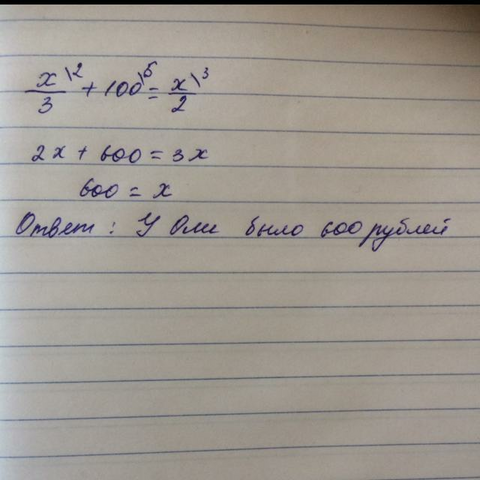 x\2/3 + 100\6 = x\3/2
2x + 600 = 3x
600 = x
Ответ: У Оли было 600 рублей